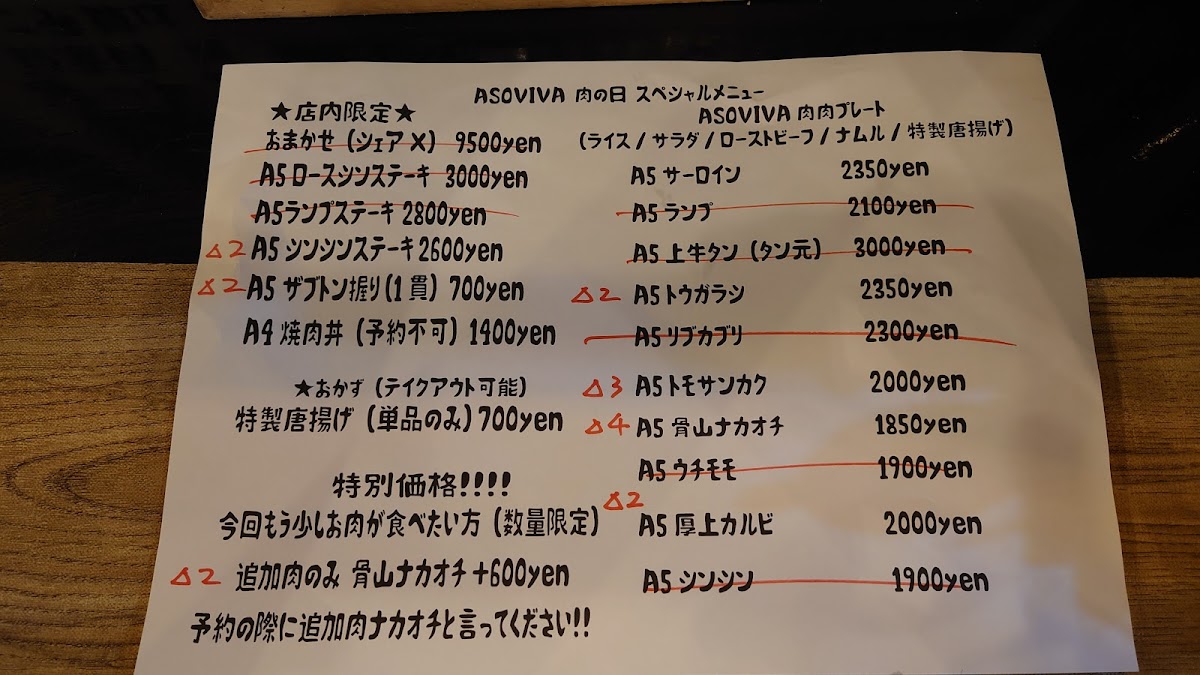 ASOVIVA 肉の日 スペシャルメニュー
★店内限定★
おまかせ (シェア X) 9500yen
A5 ロースシンステーキ 3000yen
A5ランプステーキ 2800yen
△2 A5 シンシンステーキ 2600yen
△2 A5 ザブトン握り(1貫) 700yen
A4 焼肉丼 (予約不可) 1400yen
★おかず (テイクアウト可能)
特製唐揚げ (単品のみ) 700yen
特別価格!!!!
今回もう少しお肉が食べたい方 (数量限定)
△2 追加肉のみ 骨山ナカオチ +600yen
予約の際に追加肉ナカオチと言ってください!!
ASOVIVA 肉肉プレート
(ライス / サラダ / ローストビーフ / ナムル / 特製唐揚げ)
A5 サーロイン 2350yen
A5 ランプ 2100yen
A5 上牛タン (タン元) 3000yen
△2 A5 トウガラシ 2350yen
A5 リブカブリ 2300yen
△3 A5 トモサンカク 2000yen
△4 A5 骨山ナカオチ 1850yen
A5 ウチモモ 1900yen
△2 A5 厚上カルビ 2000yen
A5 シンシン 1900yen